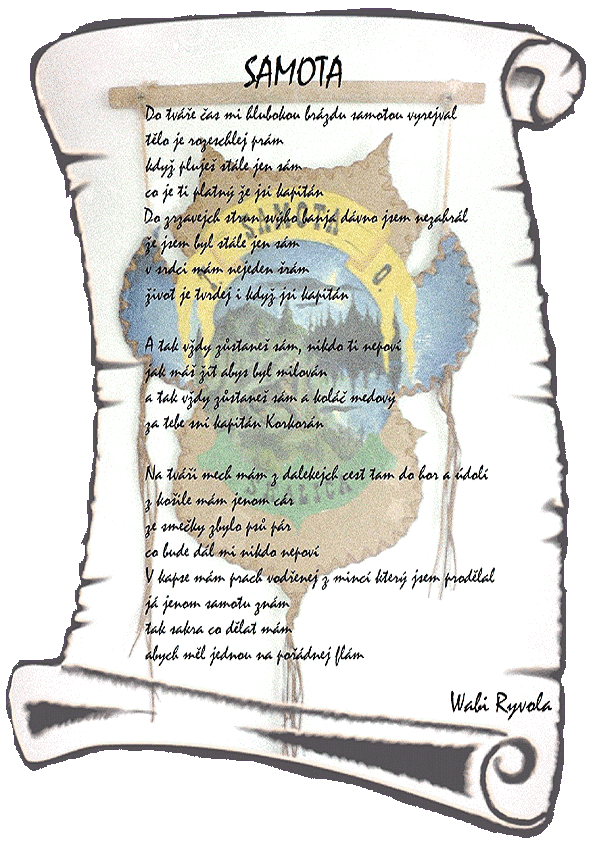 SAMOTA
Do tváře čas mi hlubokou brázdu samotou vyrejval
tělo je rozeschlej prám
když pluješ stále jen sám
co je ti platný že jsi kapitán
Do zrzavejch strun svýho banja dávno jsem nezahrál
že jsem byl stále jen sám
v srdci mám nejeden šrám
život je tvrdej i když jsi kapitán
A tak vždy zůstaneš sám, nikdo ti nepoví
jak máš žít abys byl milován
a tak vždy zůstaneš sám a koláč medový
za tebe sní kapitán Korkorán
Na tváři mech mám z dalekejch cest tam do hor a údolí
z košile mám jenom cár
ze smečky zbylo psů pár
co bude dál mi nikdo nepoví
V kapse mám prach vodřenej z mincí který jsem prodělal
já jenom samotu znám
tak sakra co dělat mám
abych měl jednou na pořádnej flám
Wabi Ryvola
T. SAMOTA O.